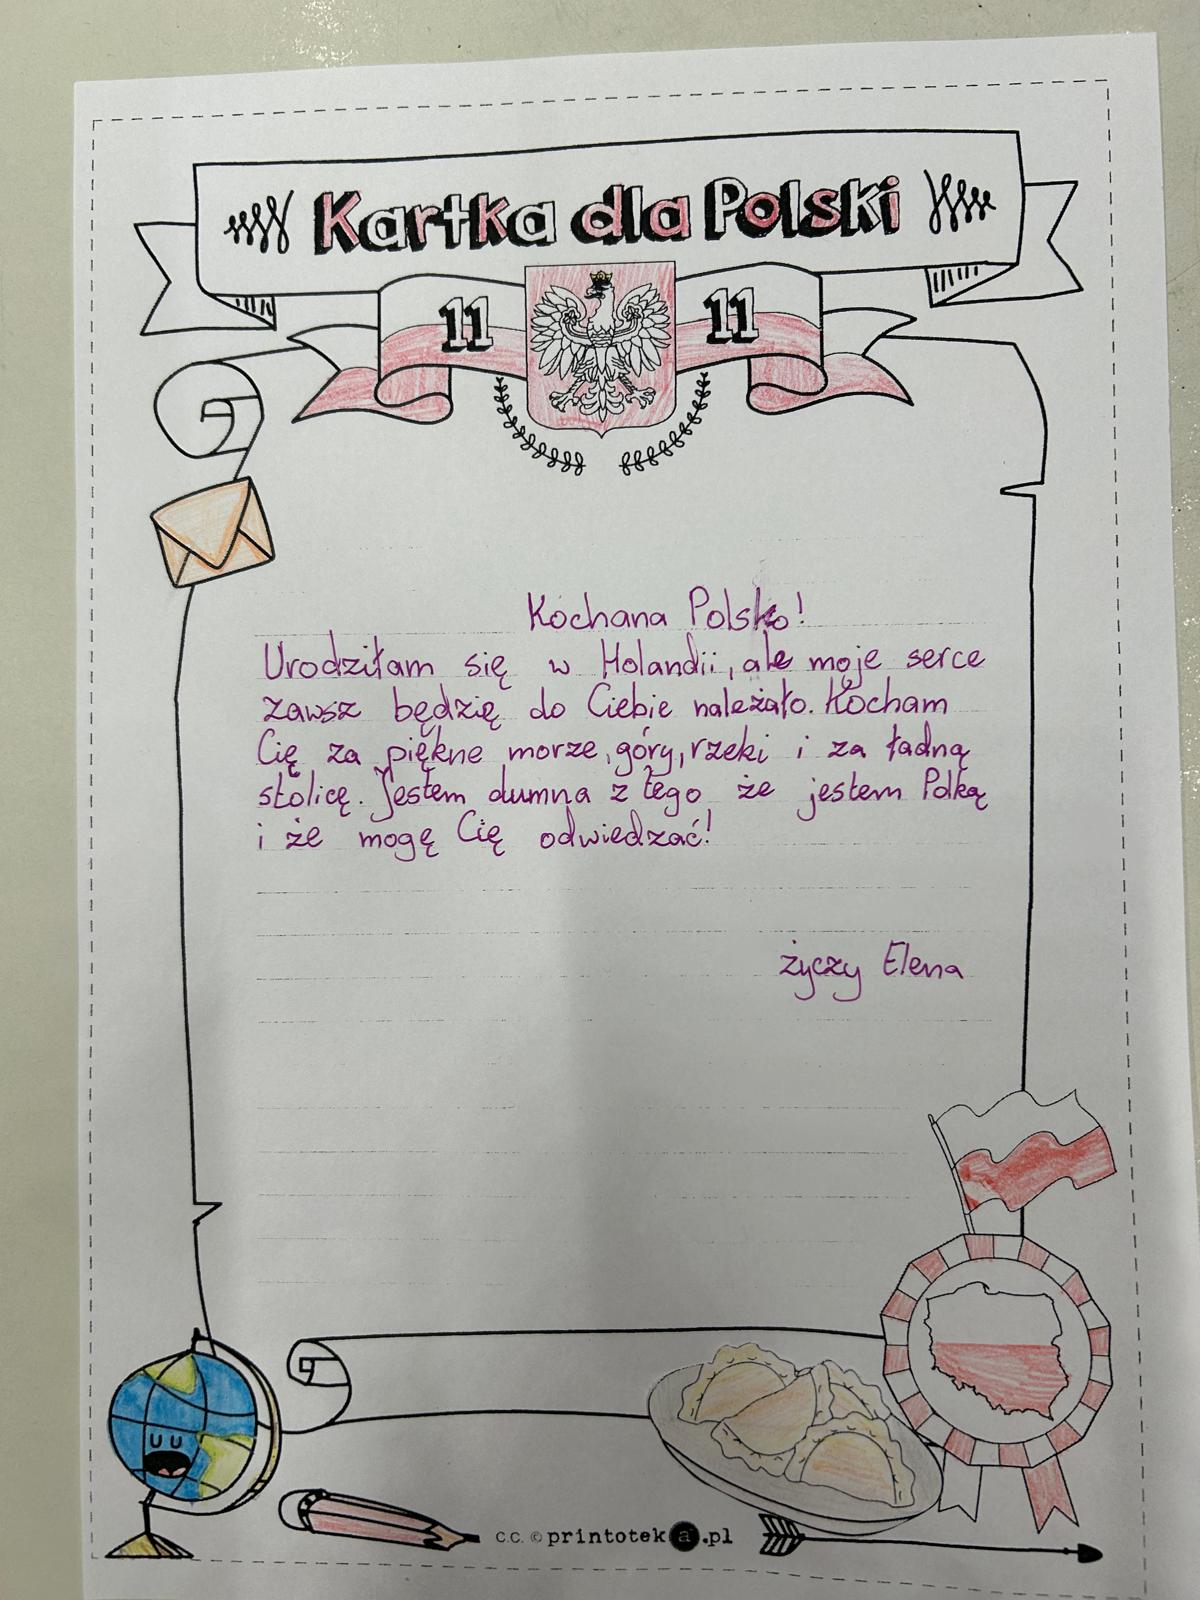 Kartka dla Polski
11 11
Kochana Polsko!
Urodziłam się w Holandii, ale moje serce
zawsz będzię do Ciebie należało. Kocham
Cię za piękne morze, góry, rzeki i za ładną
stolicę. Jestem dumna z tego że jestem Polką
i że mogę Cię odwiedzać!
życzy Elena
c.c. © printoteka.pl